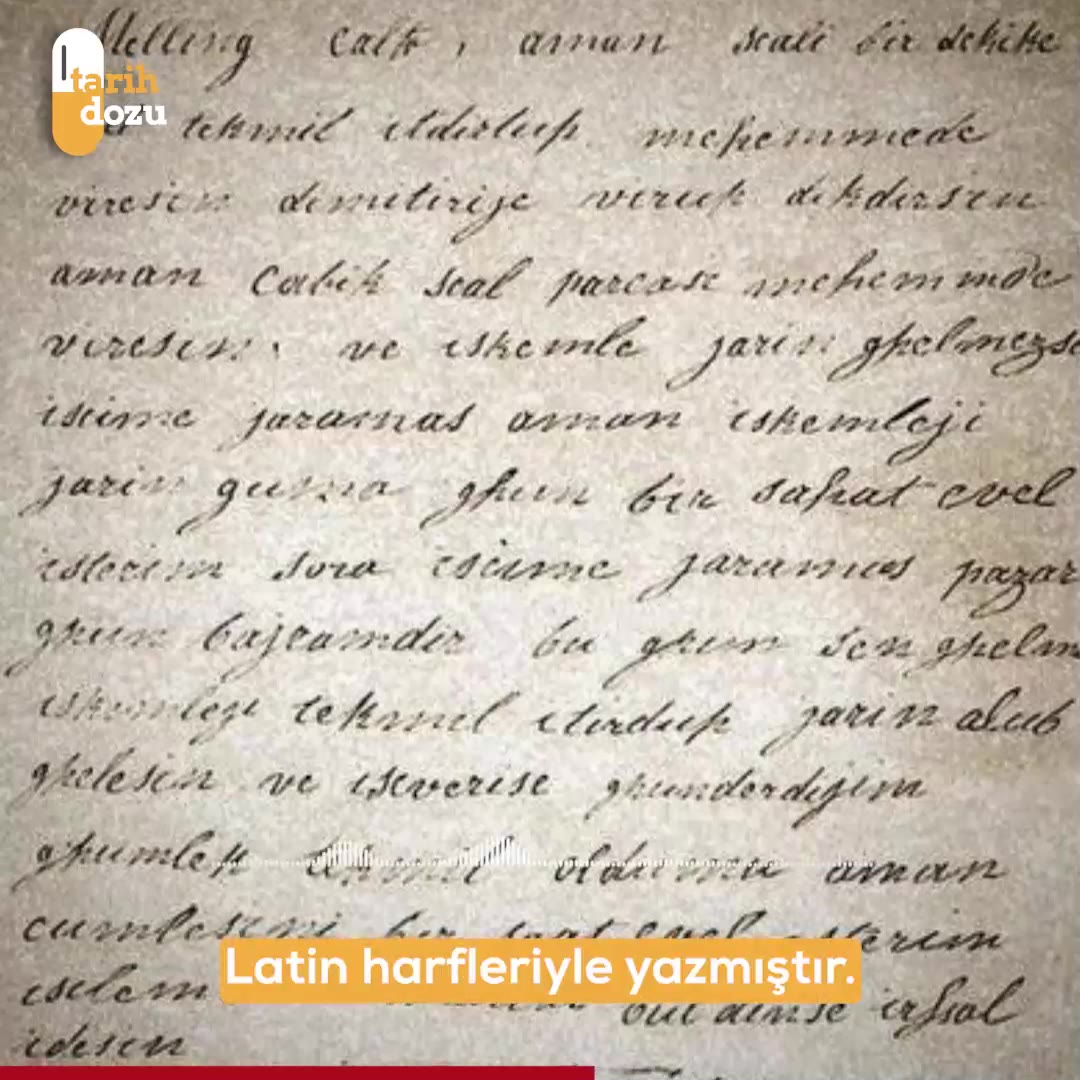 tarih
dozu
Melling Calfa, aman scali bir dekike
tekmil itdirlup mehemmede
viresin dimitirije virup dikdirsin
aman cabik scal parcase mehemmede
viresin. ve iskemle jarin ghelmezse
iscime jaramas aman iskemleji
jarin guma ghun bir sahat evel
isterim sora iscime jaramas pazar
ghun bajramdir bu ghun sen ghelm
iskemleji tekmil itirdup jarin alub
ghelesin ve iseverise ghunderdijim
ghumlek tekmil oldumu aman
cumlesini bir saat evel isterim
irsal
idesin
Latin harfleriyle yazmıştır.